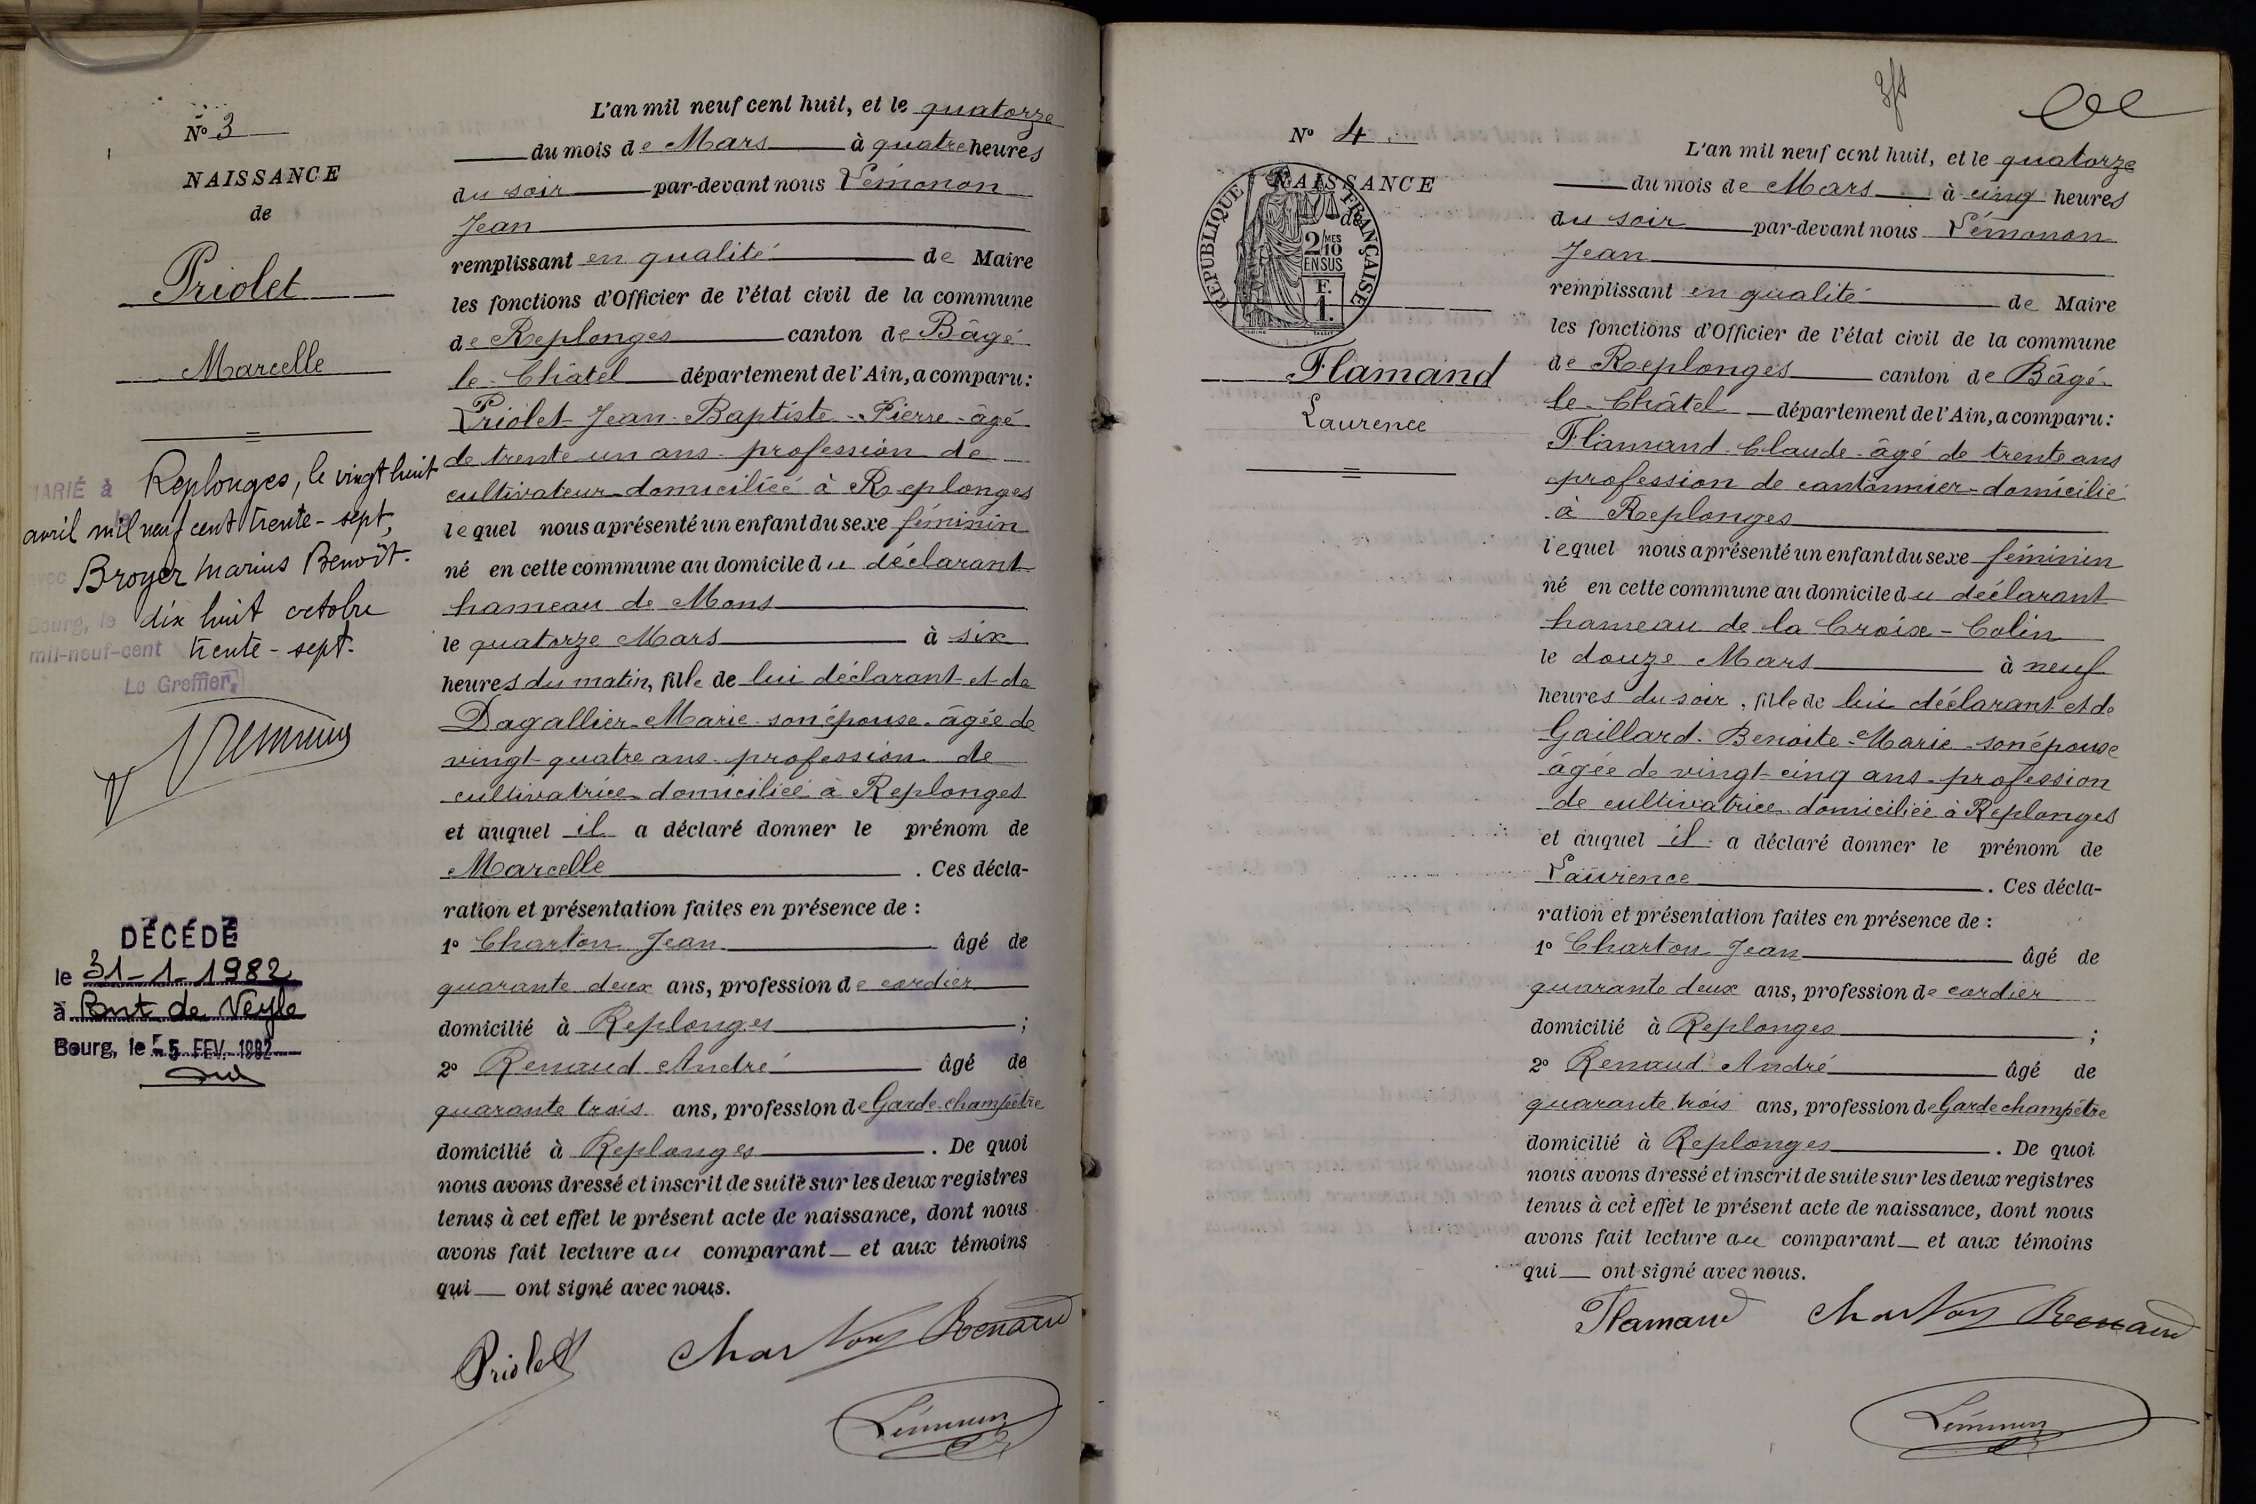 No 3
NAISSANCE
de
Priolet
Marcelle
MARIÉ à Replonges, le vingt huit
avril mil neuf cent trente-sept,
avec Broyer Marius Benoît.
Bourg, le dix huit octobre
mil-neuf-cent trente-sept.
Le Greffier,
DÉCÉDÉ
le 31-1-1982
à Pont de Veyle
Bourg, le -5 FEV. 1982
L'an mil neuf cent huit, et le quatorze
du mois de Mars à quatre heures
du soir par-devant nous Lémonon
Jean
remplissant en qualité de Maire
les fonctions d'Officier de l'état civil de la commune
de Replonges canton de Bâgé
le Châtel département de l'Ain, a comparu:
Priolet Jean-Baptiste-Pierre-âgé
de trente un ans profession de
cultivateur domicilié à Replonges
lequel nous a présenté un enfant du sexe féminin
né en cette commune au domicile du déclarant
hameau de Mons
le quatorze Mars à six
heures du matin, fille de lui déclarant et de
Dagallier Marie son épouse âgée de
vingt-quatre ans profession de
cultivatrice domiciliée à Replonges
et auquel il a déclaré donner le prénom de
Marcelle. Ces décla-
ration et présentation faites en présence de :
1o Charton Jean âgé de
quarante deux ans, profession de cordier
domicilié à Replonges ;
2o Renaud André âgé de
quarante trois ans, profession de Garde champêtre
domicilié à Replonges. De quoi
nous avons dressé et inscrit de suite sur les deux registres
tenus à cet effet le présent acte de naissance, dont nous
avons fait lecture au comparant et aux témoins
qui ont signé avec nous.
Priolet Charton Renaud
Lémonon
No 4
NAISSANCE
de
RÉPUBLIQUE FRANÇAISE
2/10MES
EN SUS
F.
1.
Flamand
Laurence
L'an mil neuf cent huit, et le quatorze
du mois de Mars à cinq heures
du soir par-devant nous Lémonon
Jean
remplissant en qualité de Maire
les fonctions d'Officier de l'état civil de la commune
de Replonges canton de Bâgé
le Châtel département de l'Ain, a comparu:
Flamand Claude âgé de trente ans
profession de cantonnier domicilié
à Replonges
lequel nous a présenté un enfant du sexe féminin
né en cette commune au domicile du déclarant
hameau de la Croix-Colin
le douze Mars à neuf
heures du soir, fille de lui déclarant et de
Gaillard Benoite-Marie son épouse
âgée de vingt-cinq ans profession
de cultivatrice domiciliée à Replonges
et auquel il a déclaré donner le prénom de
Laurence. Ces décla-
ration et présentation faites en présence de :
1o Charton Jean âgé de
quarante deux ans, profession de cordier
domicilié à Replonges ;
2o Renaud André âgé de
quarante trois ans, profession de Garde champêtre
domicilié à Replonges. De quoi
nous avons dressé et inscrit de suite sur les deux registres
tenus à cet effet le présent acte de naissance, dont nous
avons fait lecture au comparant et aux témoins
qui ont signé avec nous.
Flamand Charton Renaud
Lémonon